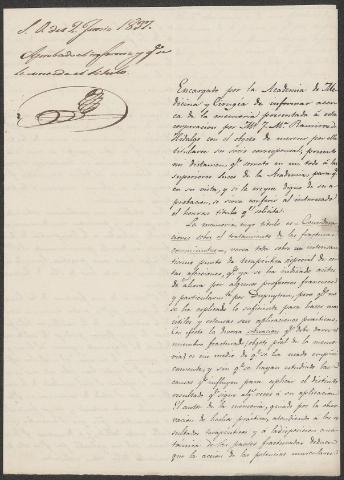 S. A. del 2 Junio 1837.
Aprobado el informe y qe. se
le remita el titulo.
Encargado por la Academia de Me-
dicina y Cirugia de informar acer-
ca de la memoria presentada á esta
corporacion por Dn. J. Mª. Ramirez
Hidalgo con el objeto de merecer por ella
titularse su socio corresponsal, presento
mi dictamen, qe. someto en un todo á las
superiores luces de la Academia, para qe.
en su vista, y si le cree digno de su a-
probacion, se sirva conferir al interesado
el honroso titulo qe. solicita.
La memoria cuyo titulo es Considera-
ciones sobre el tratamiento de las fracturas
conminutas, versa toda sobre un
punto de terapéutica especial de cier-
tas afecciones, qe. ya se ha indicado antes
de ahora por algunos profesores franceses
y particularmte. por Dupuytren, pero qe. no
se ha esplicado lo suficiente para hacer mas
utiles y estensas sus aplicaciones practicas.
En efecto la diversa situacion qe. debe darse al
miembro fracturado (objeto pral. de la memo-
ria) es un medio de qe. se ha usado empiri-
camente, y sin qe. se hayan estudiado las
causas qe. influyen para esplicar el distinto
resultado qe. sigue alg. veces á su aplicacion.
El autor de la memoria, guiado por la obser-
vacion de hechos practicos, atendiendo á los re-
sultados terapeuticos y á la disposicion ana-
tomica de las partes fracturadas deduce
que la accion de las potencias musculares